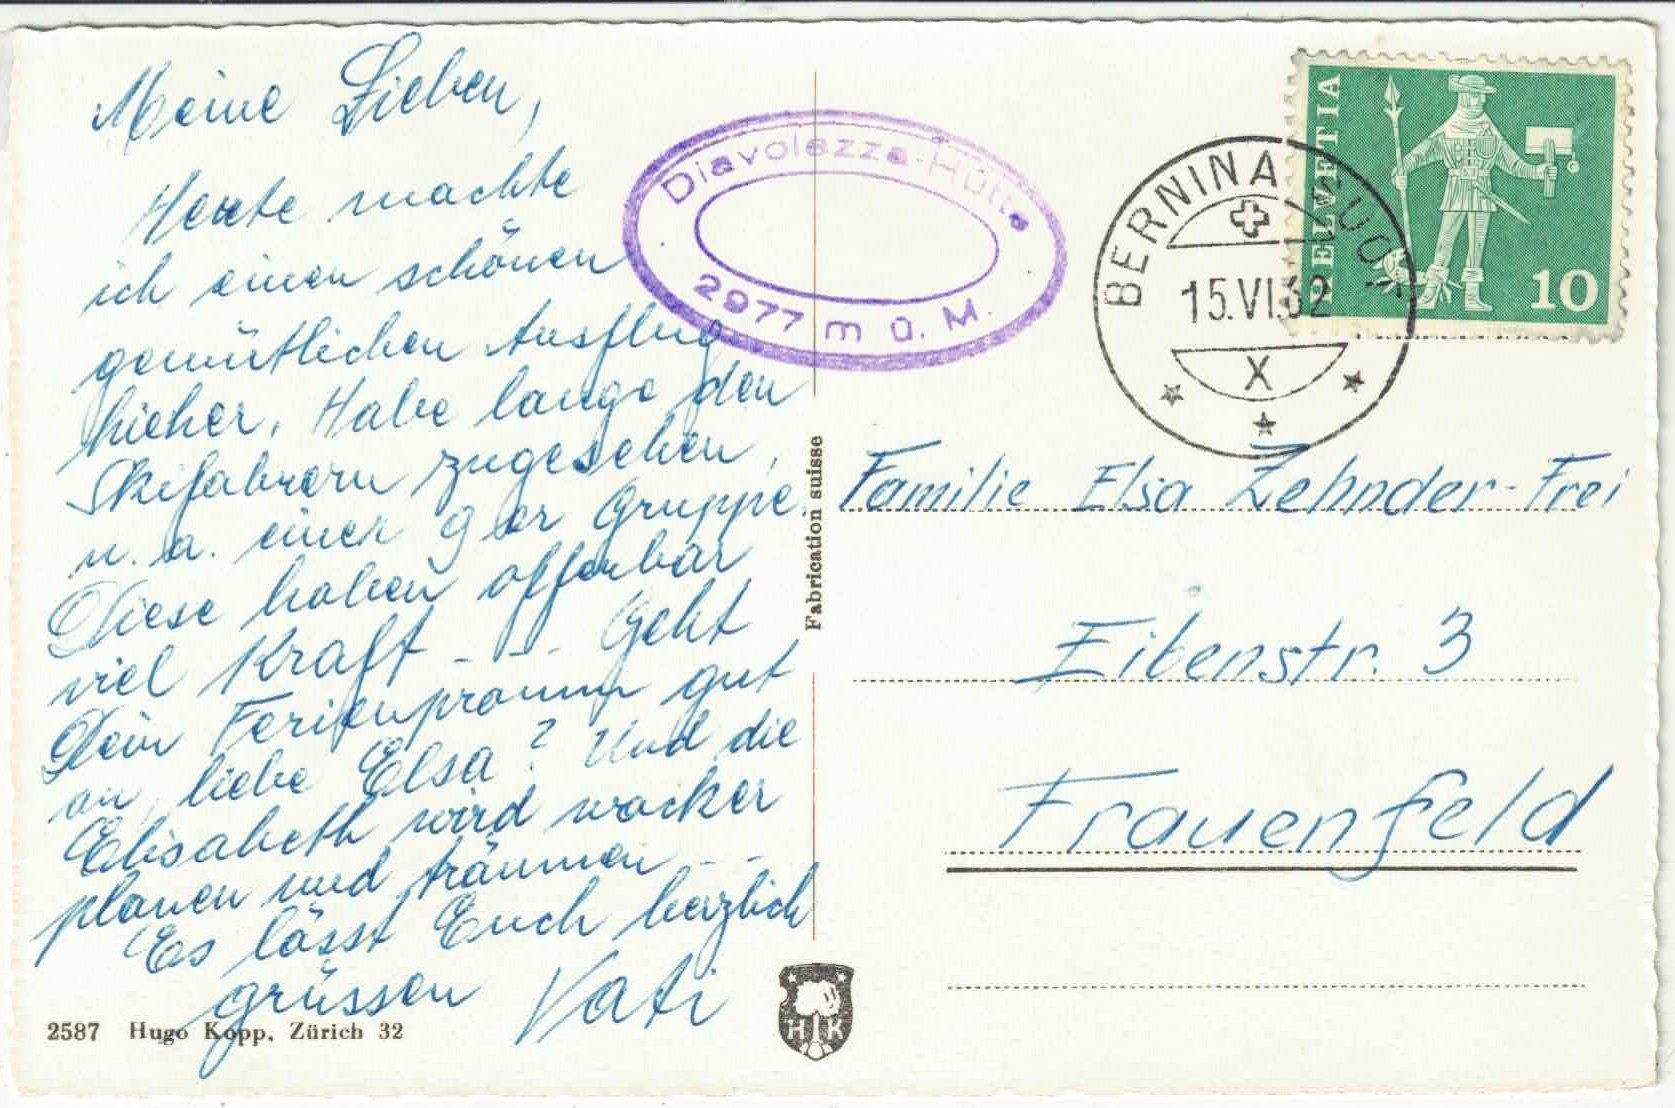 Meine Lieben,
Heute machte
ich einen schönen
gemütlichen Ausflug
hieher. Habe lange den
Skifahrern zugesehen,
u. a. einer 9 er Gruppe.
Diese haben offenbar
viel Kraft - - - Geht
Dein Ferienprogramm gut
an, liebe Elsa? Und die
Elisabeth wird wacker
planen und träumen - -
Es lässt Euch herzlich
grüssen Vati
2587 Hugo Kopp, Zürich 32
Diavolezza-Hütte
2977 m ü. M.
Fabrication suisse
HK
BERNINA SUOT
15.VI.62
X
HELVETIA
10
Familie Elsa Zehnder-Frei
Eibenstr. 3
Frauenfeld